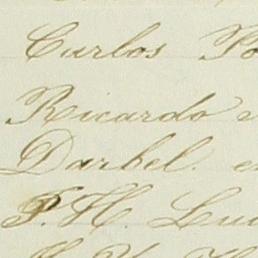 Carlos Po
Ricardo
Darbel. e
P. H. Lu